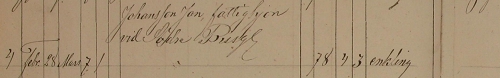 Johansson Jan, fattighjon
vid Södra
4 Febr. 28 Mars 7 78 4 3 enkling